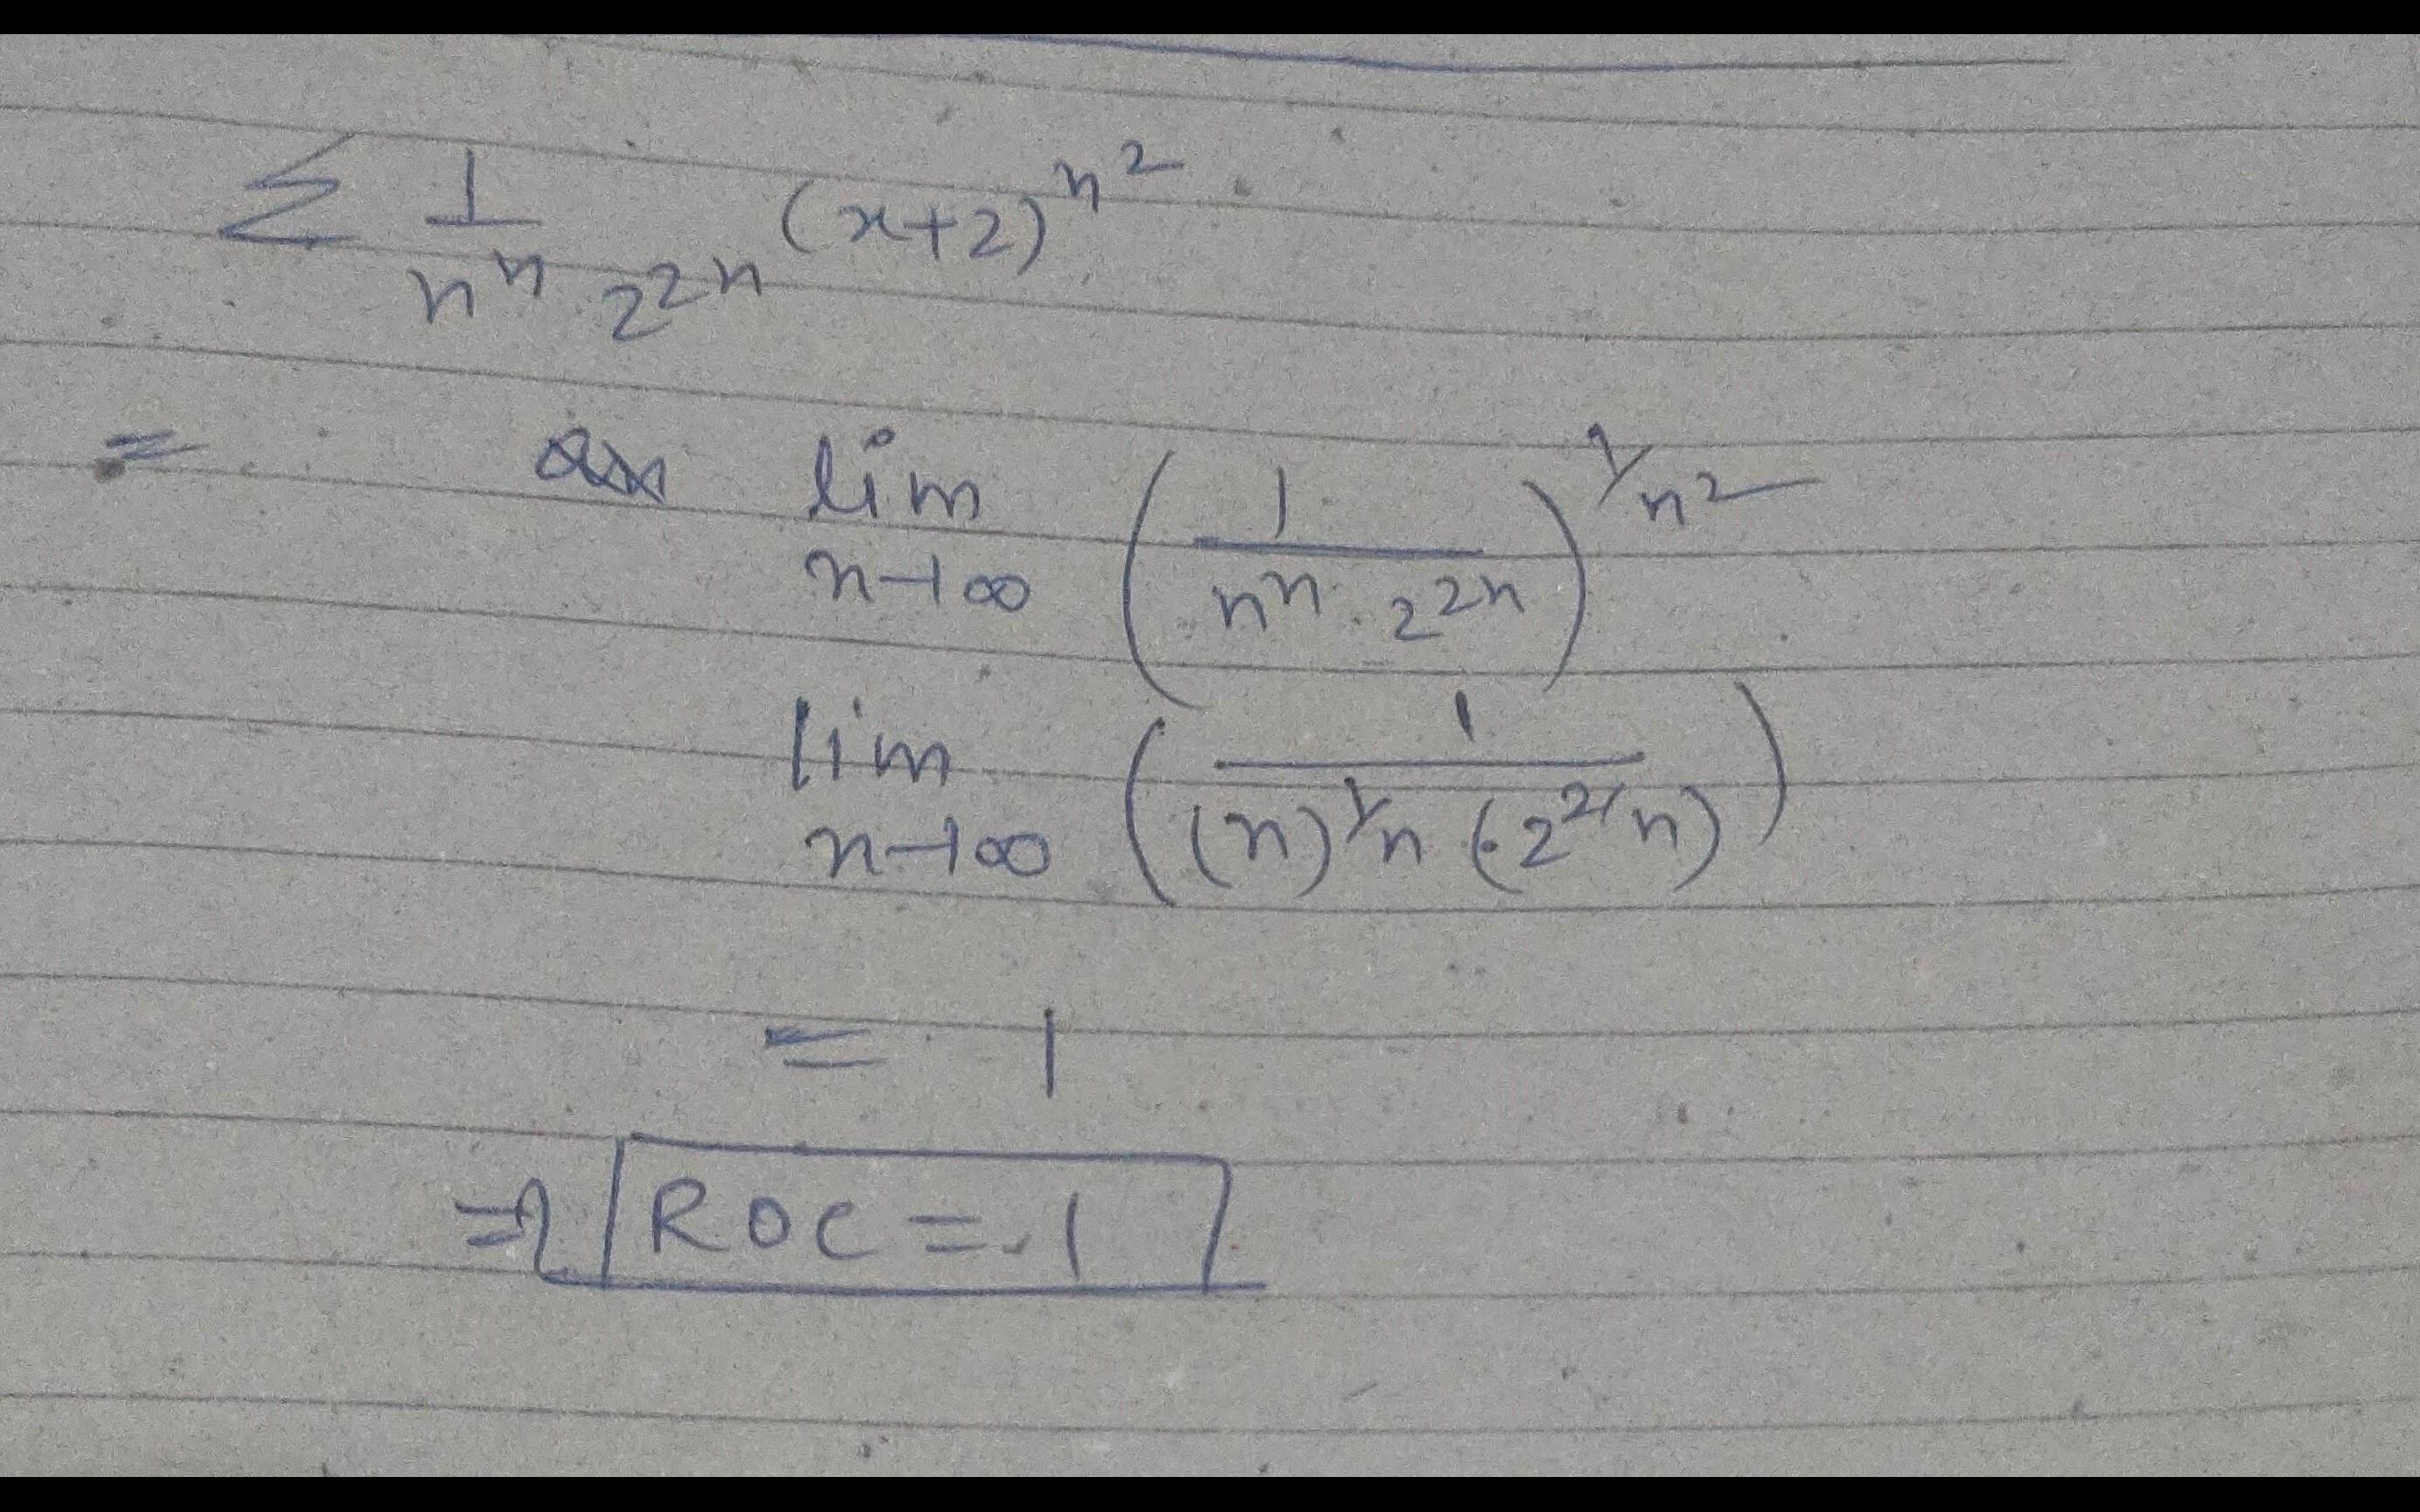 ∑ 1/(n^n 2^(2n)) (x+2)^(n^2)
= lim n→∞ (1/(n^n · 2^(2n)))^(1/n^2)
lim n→∞ (1/((n)^(1/n) (2^(2/n))))
= 1
⇒ ROC = 1